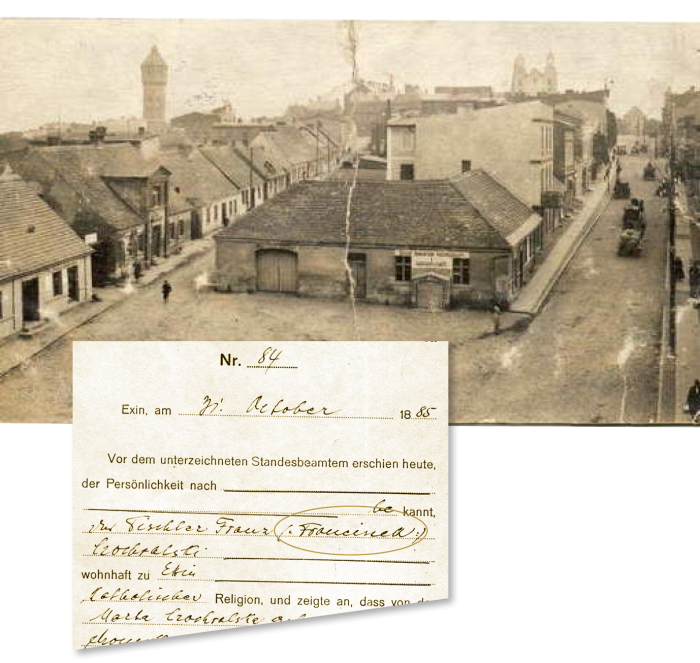 Nr. 84
Exin, am 31. October 1885
Vor dem unterzeichneten Standesbeamtem erschien heute,
der Persönlichkeit nach
be kannt,
der Tischler Franz (: Franciszek :)
Czochralski
wohnhaft zu Exin
katholischer Religion, und zeigte an, dass von
Marta Czochralska